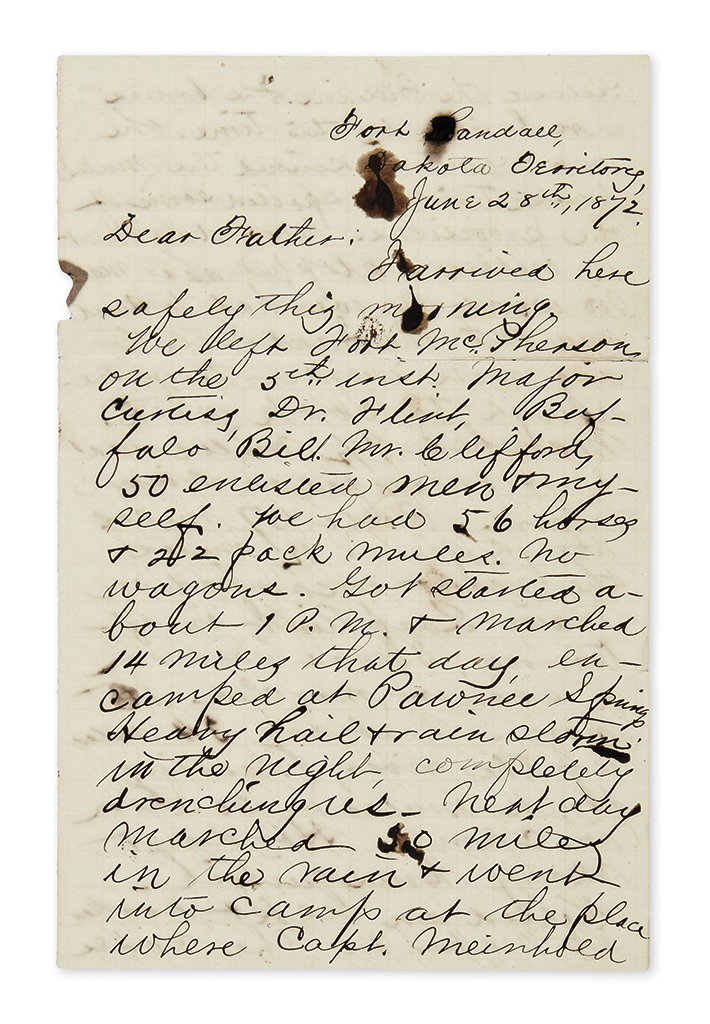 Fort Randall,
Dakota Territory,
June 28th, 1872.
Dear Father:
I arrived here
safely this morning.
We left Fort McPherson
on the 5th inst. Major
Curtiss, Dr. Flint, Buf-
falo Bill. Mr. Clifford,
50 enlisted men & my-
self. We had 56 horses
& 22 pack mules. No
wagons. Got started a-
bout 1 P.M. & marched
14 miles that day, en-
camped at Pawnee Springs
Heavy hail & rain storm
in the night, completely
drenching us - Next day
marched 30 miles
in the rain & went
into camp at the place
where Capt. Meinhold